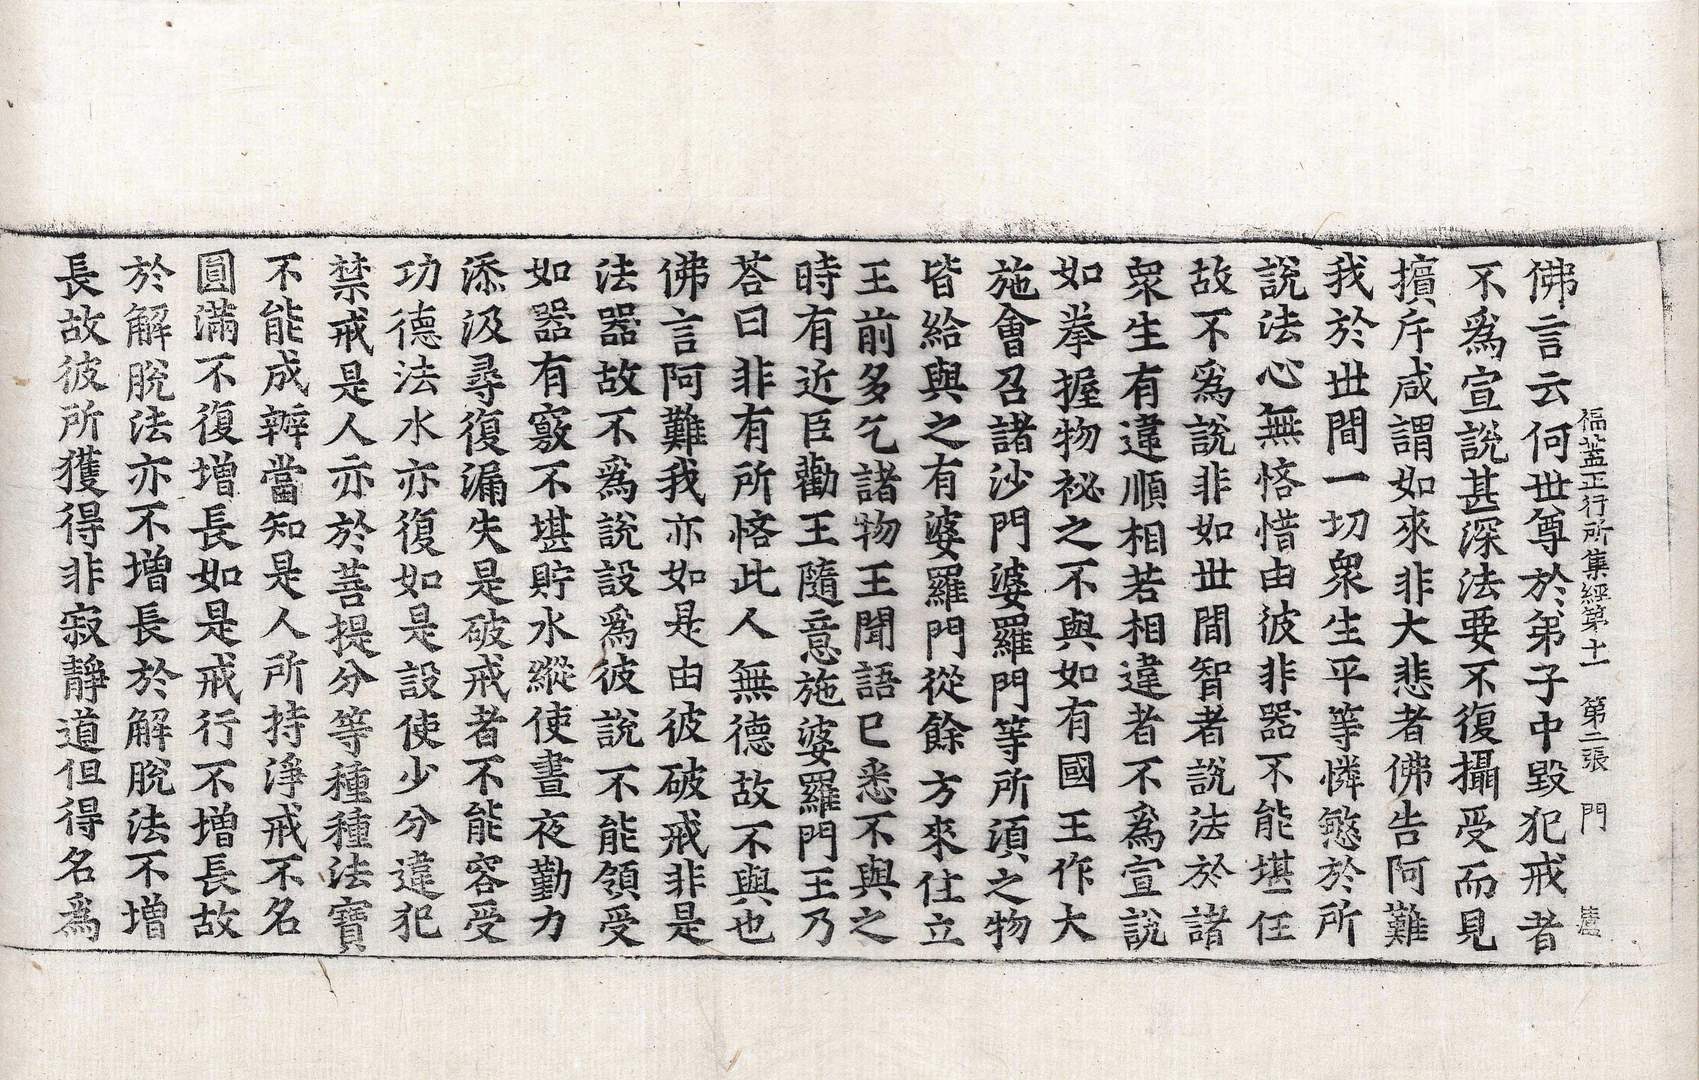 福蓋正行所集經第十一 第二張 門
佛言云何世尊於弟子中毀犯戒者
不爲宣說甚深法要不復攝受而見
擯斥咸謂如來非大悲者佛告阿難
我於世間一切衆生平等憐愍於所
說法心無悋惜由彼非器不能堪任
故不爲說非如世間智者說法於諸
衆生有違順相若相違者不爲宣說
如拳握物祕之不與如有國王作大
施會召諸沙門婆羅門等所湏之物
皆給與之有婆羅門從餘方來仕立
王前多乞諸物王聞語已悉不與之
時有近臣勸王隨意施婆羅門王乃
荅曰非有所悋此人無德故不與也
佛言阿難我亦如是由彼破戒非是
法器故不爲說設爲彼說不能領受
如器有竅不堪貯水縱使晝夜勤力
添汲尋復漏失是破戒者不能容受
功德法水亦復如是設使少分違犯
禁戒是人亦於菩提分等種種法寶
不能成辦當知是人所持淨戒不名
圓滿不復增長如是戒行不增長故
於解脫法亦不增長於解脫法不增
長故彼所獲得非寂靜道但得名爲